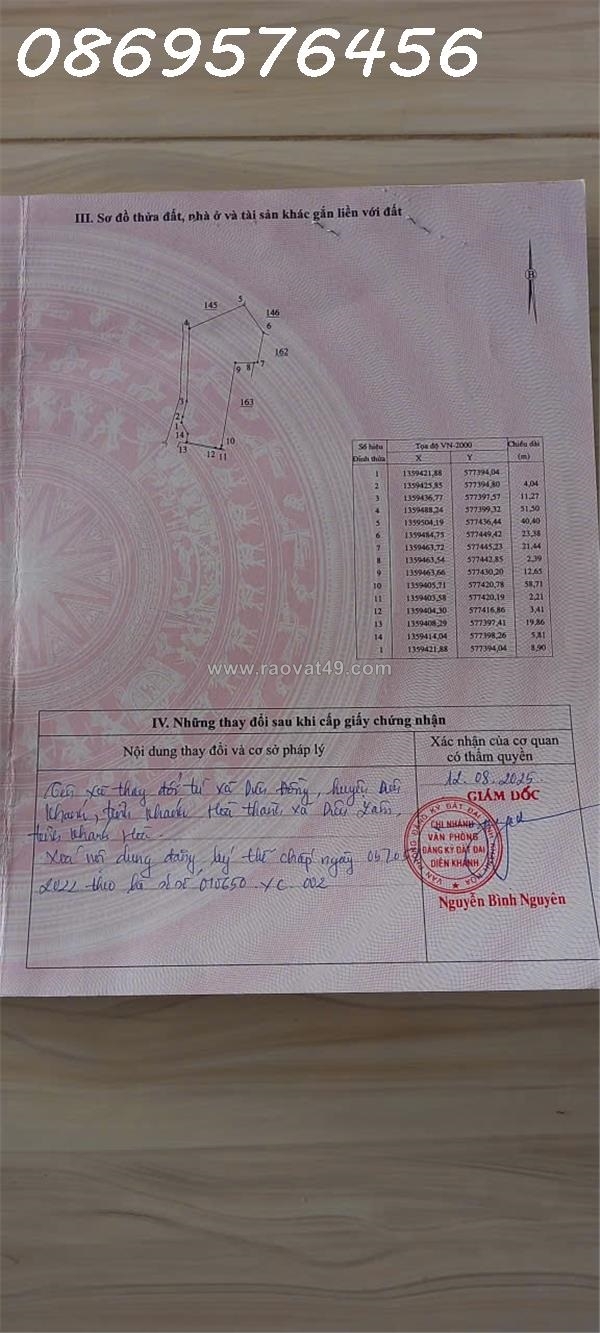 0869576456
III. Sơ đồ thửa đất, nhà ở và tài sản khác gắn liền với đất
B
145
5
146
4
6
162
9 8 7
163
3
2
1
14
13
12 11
10
Số hiệu Đỉnh thửa
Tọa độ VN-2000
Chiều dài (m)
X Y
1 1359421,88 577394,04
2 1359425,85 577394,80 4,04
3 1359436,77 577397,57 11,27
4 1359488,24 577399,32 51,50
5 1359504,19 577436,44 40,40
6 1359484,75 577449,42 23,38
7 1359463,72 577445,23 21,44
8 1359463,54 577442,85 2,39
9 1359463,66 577430,20 12,65
10 1359405,71 577420,78 58,71
11 1359403,58 577420,19 2,21
12 1359404,30 577416,86 3,41
13 1359408,29 577397,41 19,86
14 1359414,04 577398,26 5,81
1 1359421,88 577394,04 8,90
www.raovat49.com
IV. Những thay đổi sau khi cấp giấy chứng nhận
Nội dung thay đổi và cơ sở pháp lý
Xác nhận của cơ quan
có thẩm quyền
Tên xã thay đổi từ xã Diên Đồng, huyện Diên
Khánh, tỉnh Khánh Hoà thành xã Diên Lâm,
tỉnh Khánh Hoà.
Xoá nội dung đăng ký thế chấp ngày
2022 theo hồ sơ số 010650.XC.002
12.08.2025
GIÁM ĐỐC
CHI NHÁNH
VĂN PHÒNG
ĐĂNG KÝ ĐẤT ĐAI
DIÊN KHÁNH
Nguyễn Bình Nguyên